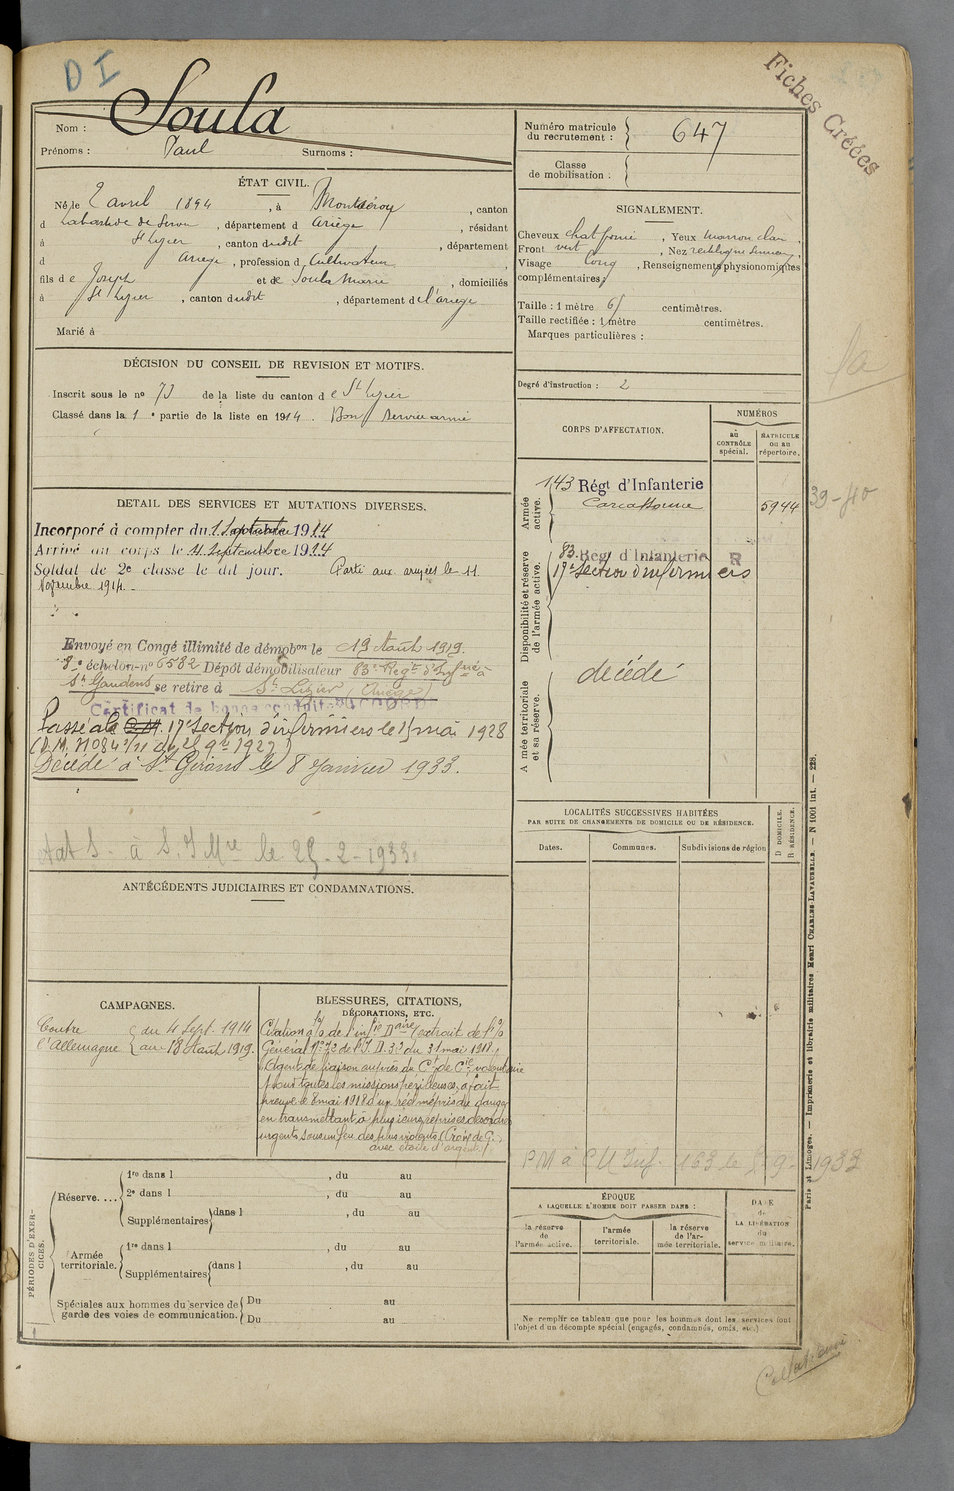 D I
Fiches Créées
Nom : Soula
Prénoms : Paul Surnoms :
Numéro matricule du recrutement : 647
Classe de mobilisation :
ÉTAT CIVIL.
Né le 2 avril 1894, à , canton
d Labastide de Serou, département d Ariège, résidant
à St Lizier, canton dudit, département
d Ariège, profession d Cultivateur,
fils de Joseph et de Soula Marie, domiciliés
à St Lizier, canton dudit, département de l'ariège
Marié à
SIGNALEMENT.
Cheveux chat foncé, Yeux marron clair.
Front vert, Nez rectiligne
Visage Long, Renseignements physionomiques
complémentaires :
Taille : 1 mètre 65 centimètres.
Taille rectifiée : 1 mètre centimètres.
Marques particulières :
Degré d'instruction : 2
DÉCISION DU CONSEIL DE REVISION ET MOTIFS.
Inscrit sous le no 73 de la liste du canton de St Lizier
Classé dans la 1e partie de la liste en 1914. Bon service armé
DÉTAIL DES SERVICES ET MUTATIONS DIVERSES.
Incorporé à compter du 1 Septembre 1914
Arrivé au corps le 4 Septembre 1914
Soldat de 2e classe le dit jour. Parti aux armées le 11
Novembre 1914.
Envoyé en Congé illimité de démobon le 19 Août 1919.
8e échelon no 6582 Dépôt démobilisateur 83e Regt d'Infrie à
St Gaudens se retire à St Lizier (Ariège)
Certificat de bonne conduite ACCORDÉ
Passé à la 17e Section d'infirmiers le 15 mai 1928
Décédé à St Girons le 8 Janvier 1933.
Etat S. à S. I Mre le 25-2-1933
CORPS D'AFFECTATION.
NUMÉROS
au CONTRÔLE spécial.
MATRICULE ou au répertoire.
Armée active.
143 Régt d'Infanterie
Carcassonne 5944
Disponibilité et réserve de l'armée active.
83. Rég d'Infanterie R
17e Section d'infirmiers
Armée territoriale et sa réserve.
décédé
39-40
LOCALITÉS SUCCESSIVES HABITÉES
PAR SUITE DE CHANGEMENTS DE DOMICILE OU DE RÉSIDENCE.
Dates. Communes. Subdivisions de région
D DOMICILE. R RÉSIDENCE.
ANTÉCÉDENTS JUDICIAIRES ET CONDAMNATIONS.
CAMPAGNES.
Contre l'Allemagne { du 4 Sept. 1914
au 18 Août 1919.
BLESSURES, CITATIONS,
DÉCORATIONS, ETC.
Citation à l'o/ de l'infie Daire (extrait de l'o/
Général No 72 de l'I D. 33 du 31 mai 1918.
Agent de liaison auprès du Ct de Cie, volontaire
pour toutes les missions périlleuses, a fait
preuve le 8 mai 1918 d'un réel mépris du danger
en transmettant à plusieurs reprises des ordres
urgents sous un feu des plus violents. (Croix de G.
avec étoile d'argent).
PÉRIODES D'EXERCICES.
Réserve....
1re dans l , du au
2e dans l , du au
Supplémentaires dans l , du au
Armée territoriale.
1re dans l , du au
Supplémentaires dans l , du au
Spéciales aux hommes du service de garde des voies de communication.
Du au
Du au
ÉPOQUE
A LAQUELLE L'HOMME DOIT PASSER DANS :
la réserve de l'armée active.
l'armée territoriale.
la réserve de l'armée territoriale.
DATE de LA LIBÉRATION du service militaire.
Ne remplir ce tableau que pour les hommes dont les services font
l'objet d'un décompte spécial (engagés, condamnés, omis, etc.)
Paris et Limoges. — Imprimerie et librairie militaires Henri CHARLES-LAVAUZELLE. — N 1001 int. — 228.